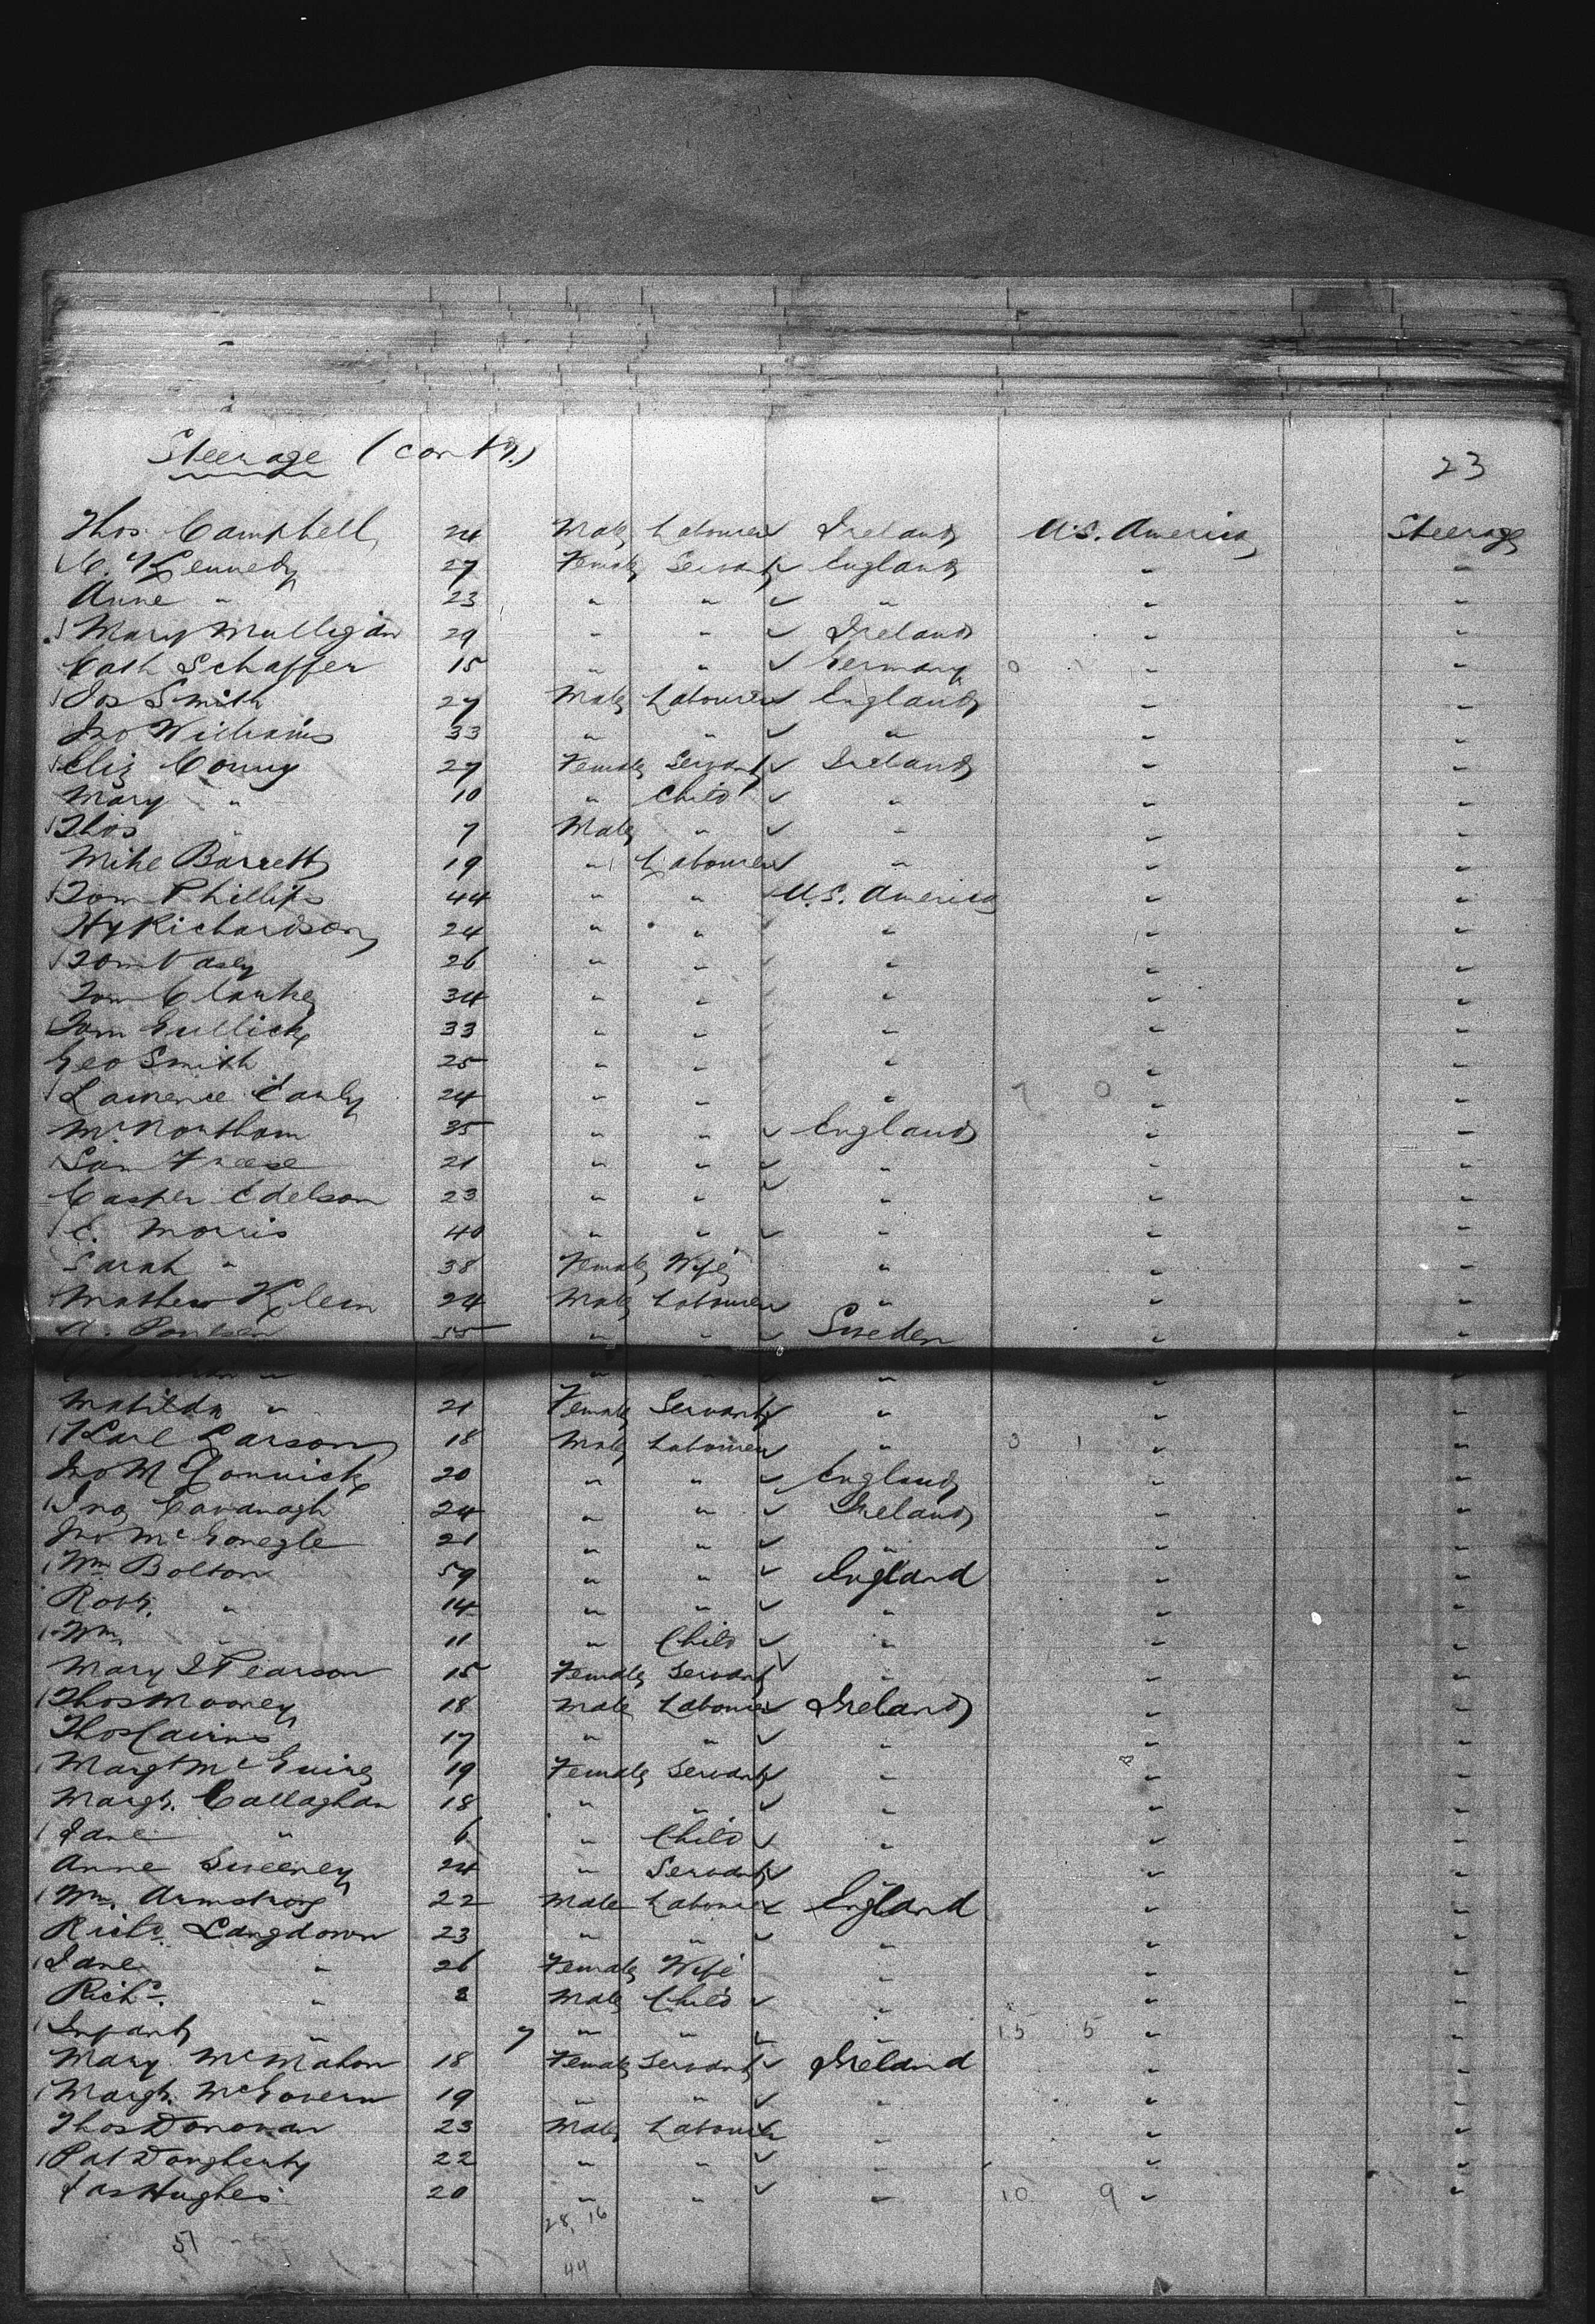 Steerage (Contd.) 23
Thos. Campbell 24 Male Labourer Ireland U.S. America Steerage
Kennedy 27 Female Servant England " "
Anne " 23 " " " " "
Mary Mulligan 29 " " Ireland " "
Cath Schaffer 15 " " Germany 0 " "
Jos Smith 27 Male Labourer England " "
Jno Williams 33 " " " " "
Eliz Conny 27 Female Servant Ireland " "
Mary " 10 " Child " " "
Thos " 7 Male " " " "
Mike Barrett 19 " Labourer " " "
Tom Phillips 44 " " U.S. America " "
Hy Richardson 24 " " " " "
Tom Vasey 26 " " " " "
Tom Clarke 34 " " " " "
Tom Gullick 33 " " " " "
Geo Smith 25 " " " " "
Lawrence Early 24 " " " 7 0 " "
Mr. Northam 35 " " England " "
Sam Freese 21 " " " " "
Casper Edelson 23 " " " " "
E. Morris 40 " " " " "
Sarah " 38 Female Wife " " "
Mathew Klein 24 Male Labourer " " "
A. Poulsen 55 " " Sweden " "
" " " " " "
Matilda " 21 Female Servant " " "
Karl Larson 18 Male Labourer " 3 1 " "
Jno McConnick 20 " " England " "
Jno Cavanagh 24 " " Ireland " "
Jno McGonegle 21 " " " " "
Wm Bolton 59 " " England " "
Robt. " 14 " " " " "
Wm " 11 " Child " " "
Mary J Pearson 15 Female Servant " " "
Thos Mooney 18 Male Labourer Ireland " "
Thos Cairns 17 " " " " "
Margt McGuire 19 Female Servant " " "
Margt. Callaghan 18 " " " " "
Jane " 6 " Child " " "
Anne Sweeney 24 " Servant " " "
Wm. Armstrong 22 Male Labourer England " "
Richd. Langdown 23 " " " " "
Jane " 26 Female Wife " " "
Richd. " 2 Male Child " " "
Infant " 7 " " " 15 5 " "
Mary McMahon 18 Female Servant Ireland " "
Margt. McGovern 19 " " " " "
Thos Donovan 23 Male Labourer " " "
Pat Dougherty 22 " " " " "
Jas Hughes 20 " " " 10 9 " "
51 28, 16
44